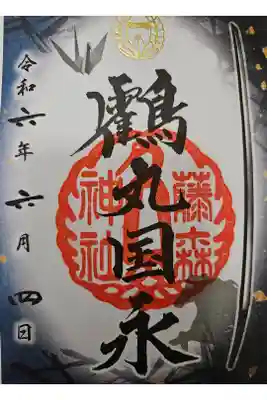 鶴丸国永
藤森
神社
令和六年六月四日